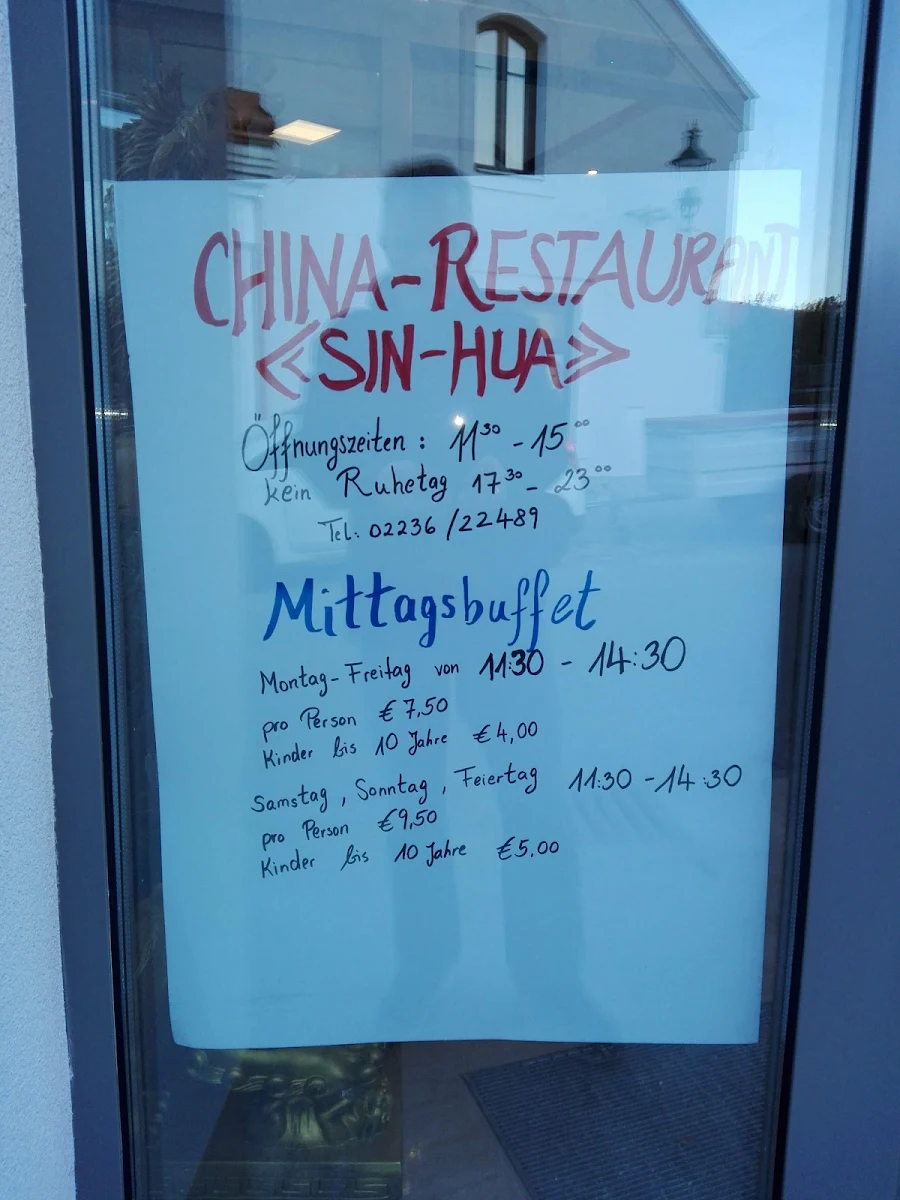 CHINA-RESTAURANT
<<SIN-HUA>>
Öffnungszeiten : 11³⁰ - 15⁰⁰
kein Ruhetag 17³⁰ - 23⁰⁰
Tel: 02236 /22489
Mittagsbuffet
Montag-Freitag von 11:30 - 14:30
pro Person € 7,50
Kinder bis 10 Jahre € 4,00
Samstag , Sonntag , Feiertag 11:30 - 14:30
pro Person €9,50
Kinder bis 10 Jahre €5,00